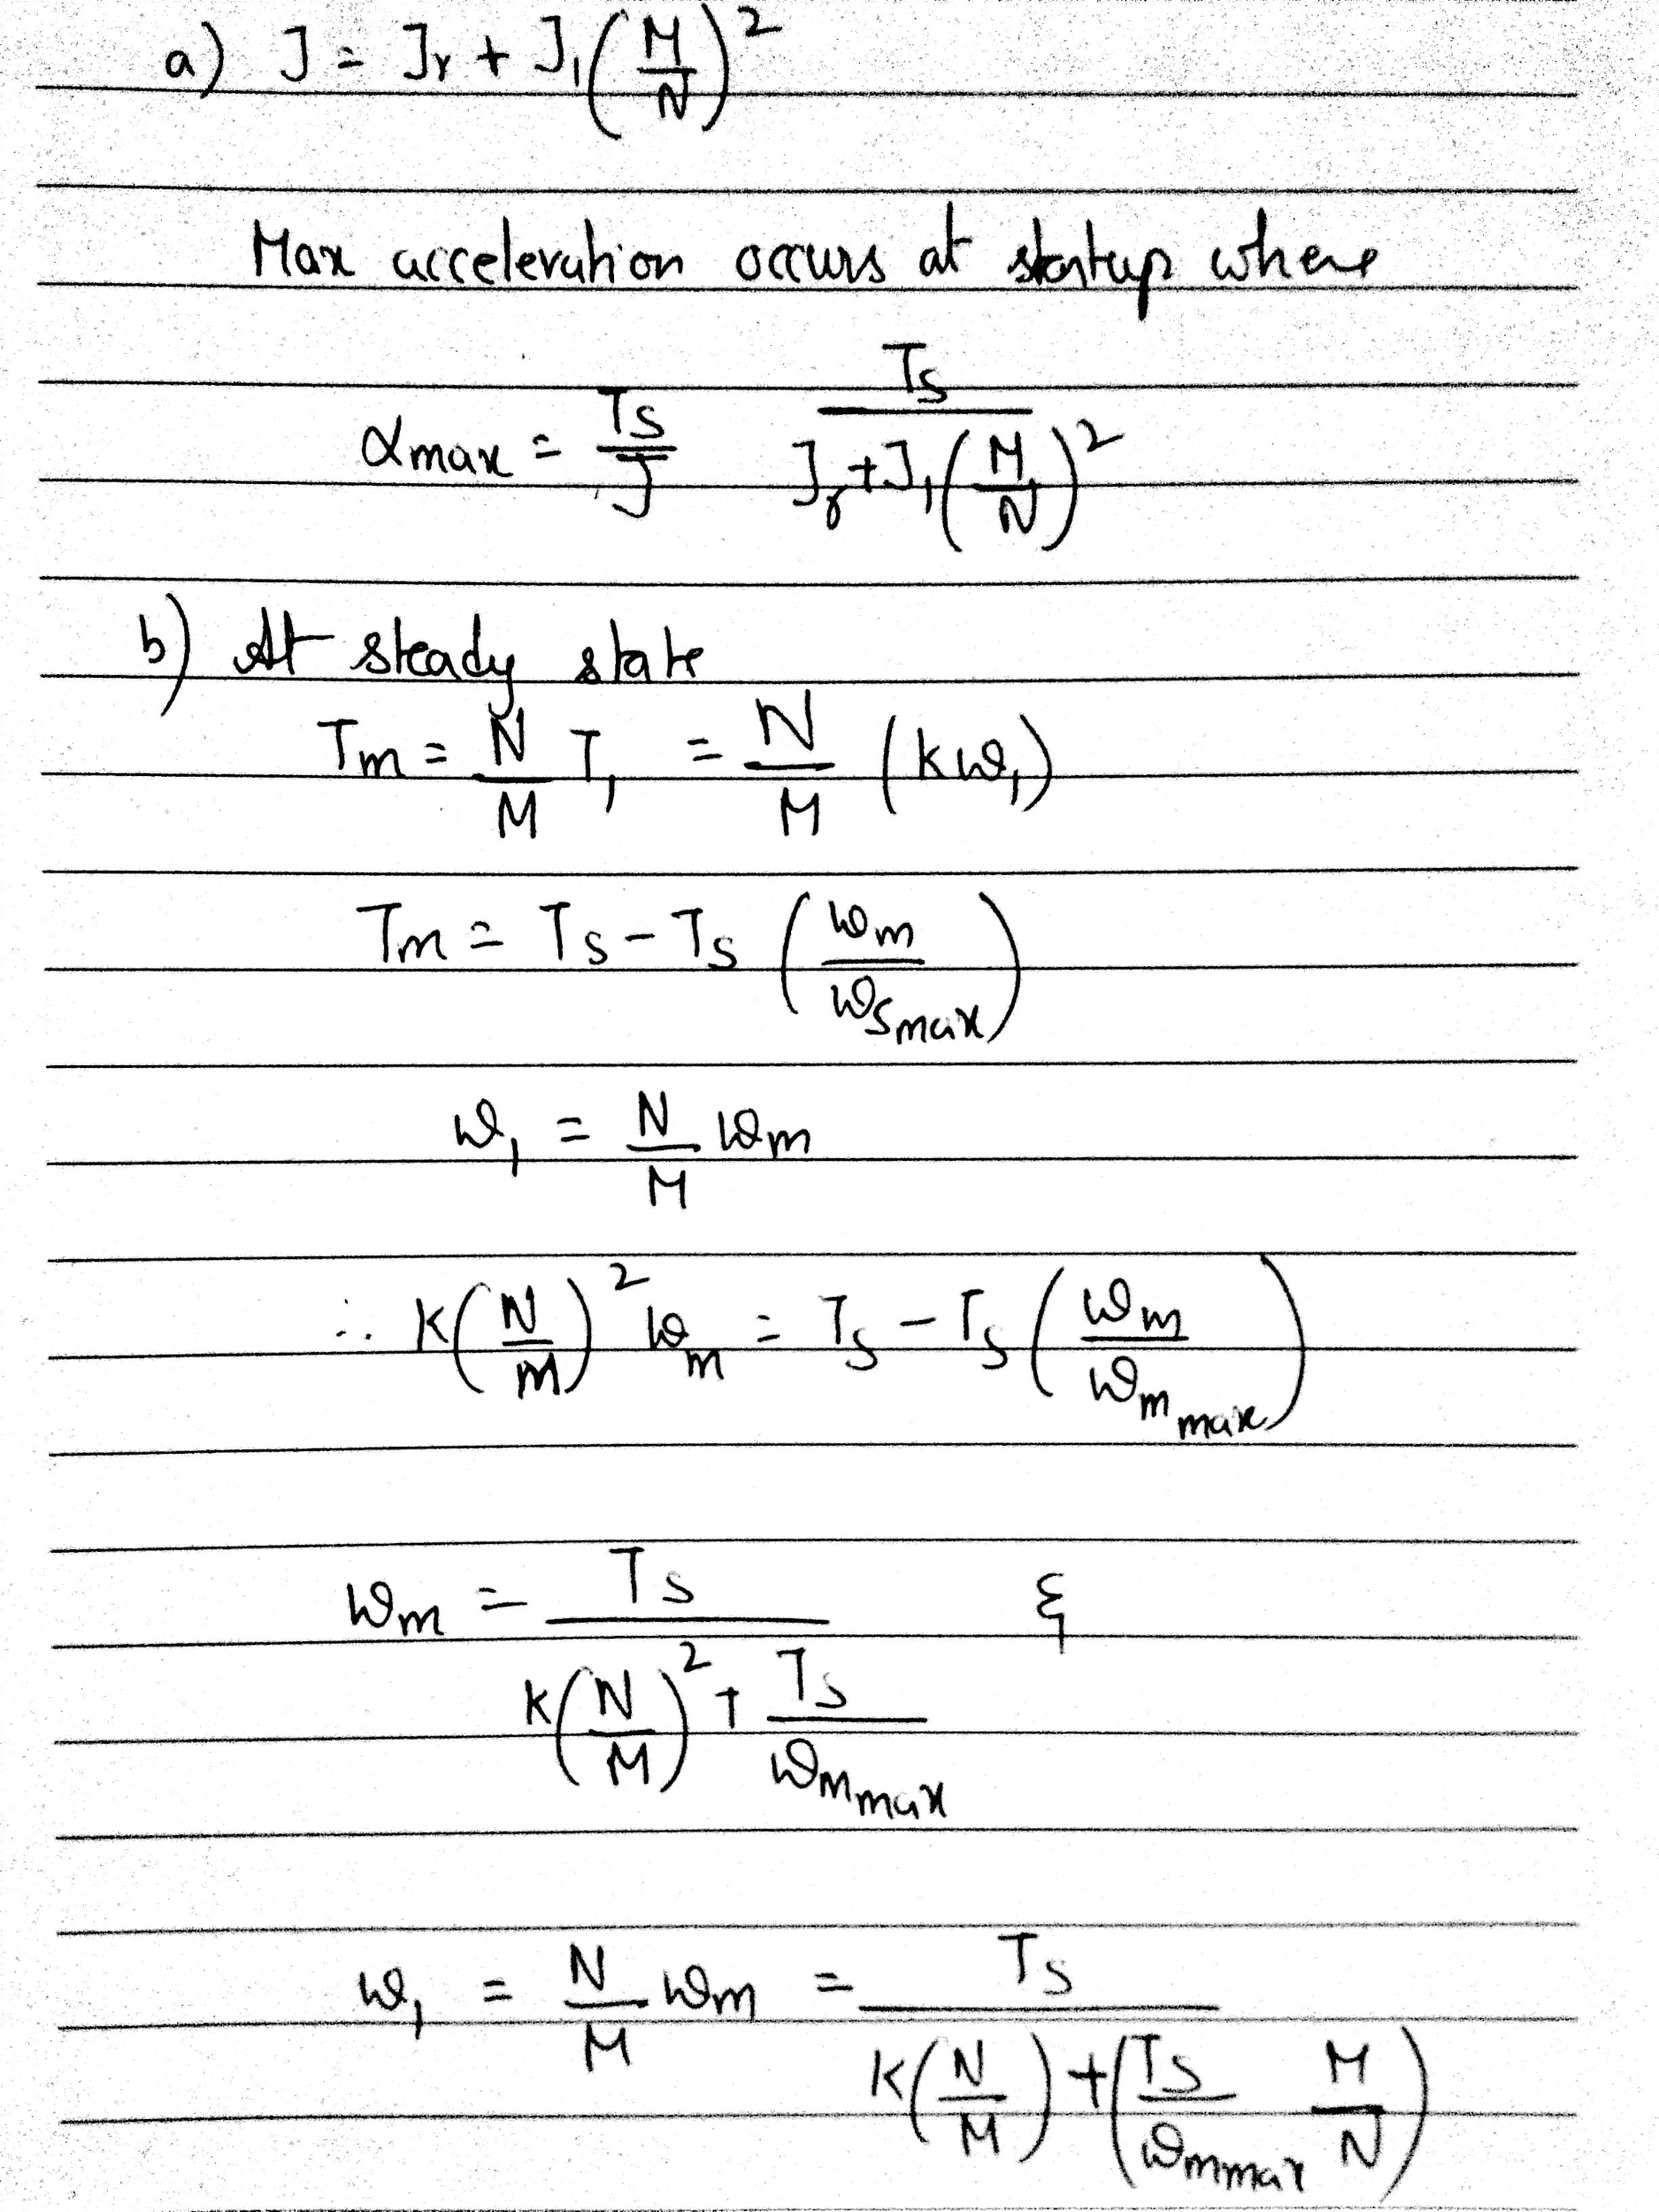 a) J = Jr + J₁(M/N)²
Max acceleration occurs at startup where
αmax = Ts/J   Ts/(Jr+J₁(M/N)²)
b) At steady state
Tm = N/M T₁ = N/M (kω₁)
Tm = Ts - Ts (ωm/ωsmax)
ω₁ = N/M ωm
∴ K(N/m)² ωm = Ts - Ts (ωm/ωm max)
ωm = Ts/(K(N/M)² + Ts/ωm max) &
ω₁ = N/M ωm = Ts/(K(N/M) + (Ts/ωm max M/N))